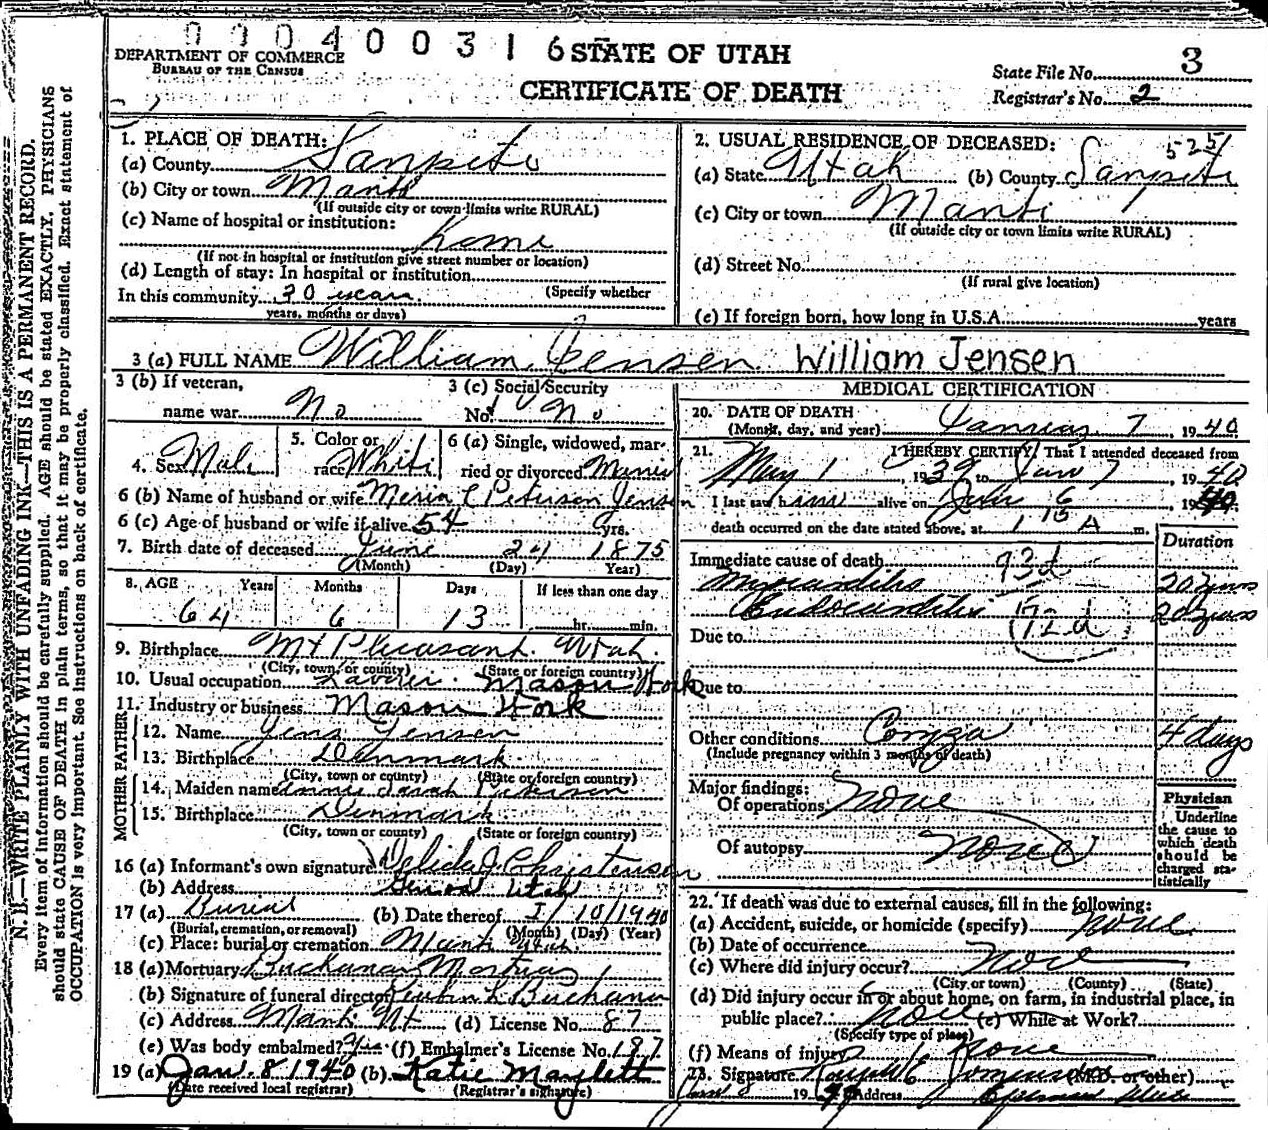 0004003 1 6 STATE OF UTAH
DEPARTMENT OF COMMERCE
BUREAU OF THE CENSUS
CERTIFICATE OF DEATH
State File No. 3
Registrar's No. 2
N. B.—WRITE PLAINLY WITH UNFADING INK—THIS IS A PERMANENT RECORD.
Every item of information should be carefully supplied. AGE should be stated EXACTLY. PHYSICIANS
should state CAUSE OF DEATH in plain terms, so that it may be properly classified. Exact statement of
OCCUPATION is very important. See instructions on back of certificate.
1. PLACE OF DEATH:
(a) County Sanpete
(b) City or town Manti
(If outside city or town limits write RURAL)
(c) Name of hospital or institution:
Home
(If not in hospital or institution give street number or location)
(d) Length of stay: In hospital or institution
(Specify whether
In this community 30 years
years, months or days)
2. USUAL RESIDENCE OF DECEASED: 525
(a) State Utah (b) County Sanpete
(c) City or town Manti
(If outside city or town limits write RURAL)
(d) Street No.
(If rural give location)
(e) If foreign born, how long in U.S.A. years
3 (a) FULL NAME William Jensen William Jensen
3 (b) If veteran,
name war No
3 (c) Social Security
No. No
4. Sex Male
5. Color or
race White
6 (a) Single, widowed, mar-
ried or divorced
6 (b) Name of husband or wife Peterson Jensen
6 (c) Age of husband or wife if alive 54 yrs.
7. Birth date of deceased June 24 1875
(Month) (Day) Year)
8. AGE Years Months Days If less than one day
64 6 13 hr. min.
9. Birthplace Mt Pleasant Utah
(City, town, or county) (State or foreign country)
10. Usual occupation Mason Work
11. Industry or business Mason Work
FATHER
12. Name Jens Jensen
13. Birthplace Denmark
(City, town or county) (State or foreign country)
MOTHER
14. Maiden name Sarah Peterson
15. Birthplace Denmark
(City, town or county) (State or foreign country)
16 (a) Informant's own signature J. Christensen
(b) Address Utah
17 (a) Burial (b) Date thereof 1/10/1940
(Burial, cremation, or removal) (Month) (Day) (Year)
(c) Place: burial or cremation Manti Utah
18 (a) Mortuary Buchanan Mortuary
(b) Signature of funeral director L. Buchanan
(c) Address Manti Ut (d) License No. 87
(e) Was body embalmed? Yes (f) Embalmer's License No. 187
19 (a) Jan. 8 1940 (b) Katie Maylett
(Date received local registrar) (Registrar's signature)
MEDICAL CERTIFICATION
20. DATE OF DEATH
(Month, day, and year) January 7 1940
21. I HEREBY CERTIFY, That I attended deceased from
May 1, 1939 to Jan 7, 1940
I last saw him alive on 6 1940
death occurred on the date stated above, at 1 15 A m.
Duration
Immediate cause of death 93d
Myocarditis 20 years
Endocarditis 20 years
Due to
Due to
Other conditions 4 days
(Include pregnancy within 3 months of death)
Major findings:
Of operations None
Of autopsy None
Physician
Underline
the cause to
which death
should be
charged sta-
tistically
22. If death was due to external causes, fill in the following:
(a) Accident, suicide, or homicide (specify) None
(b) Date of occurrence
(c) Where did injury occur? None
(City or town) (County) (State)
(d) Did injury occur in or about home, on farm, in industrial place, in
public place? None (e) While at Work?
(Specify type of place)
(f) Means of injury None
23. Signature (M.D. or other)
19 Address